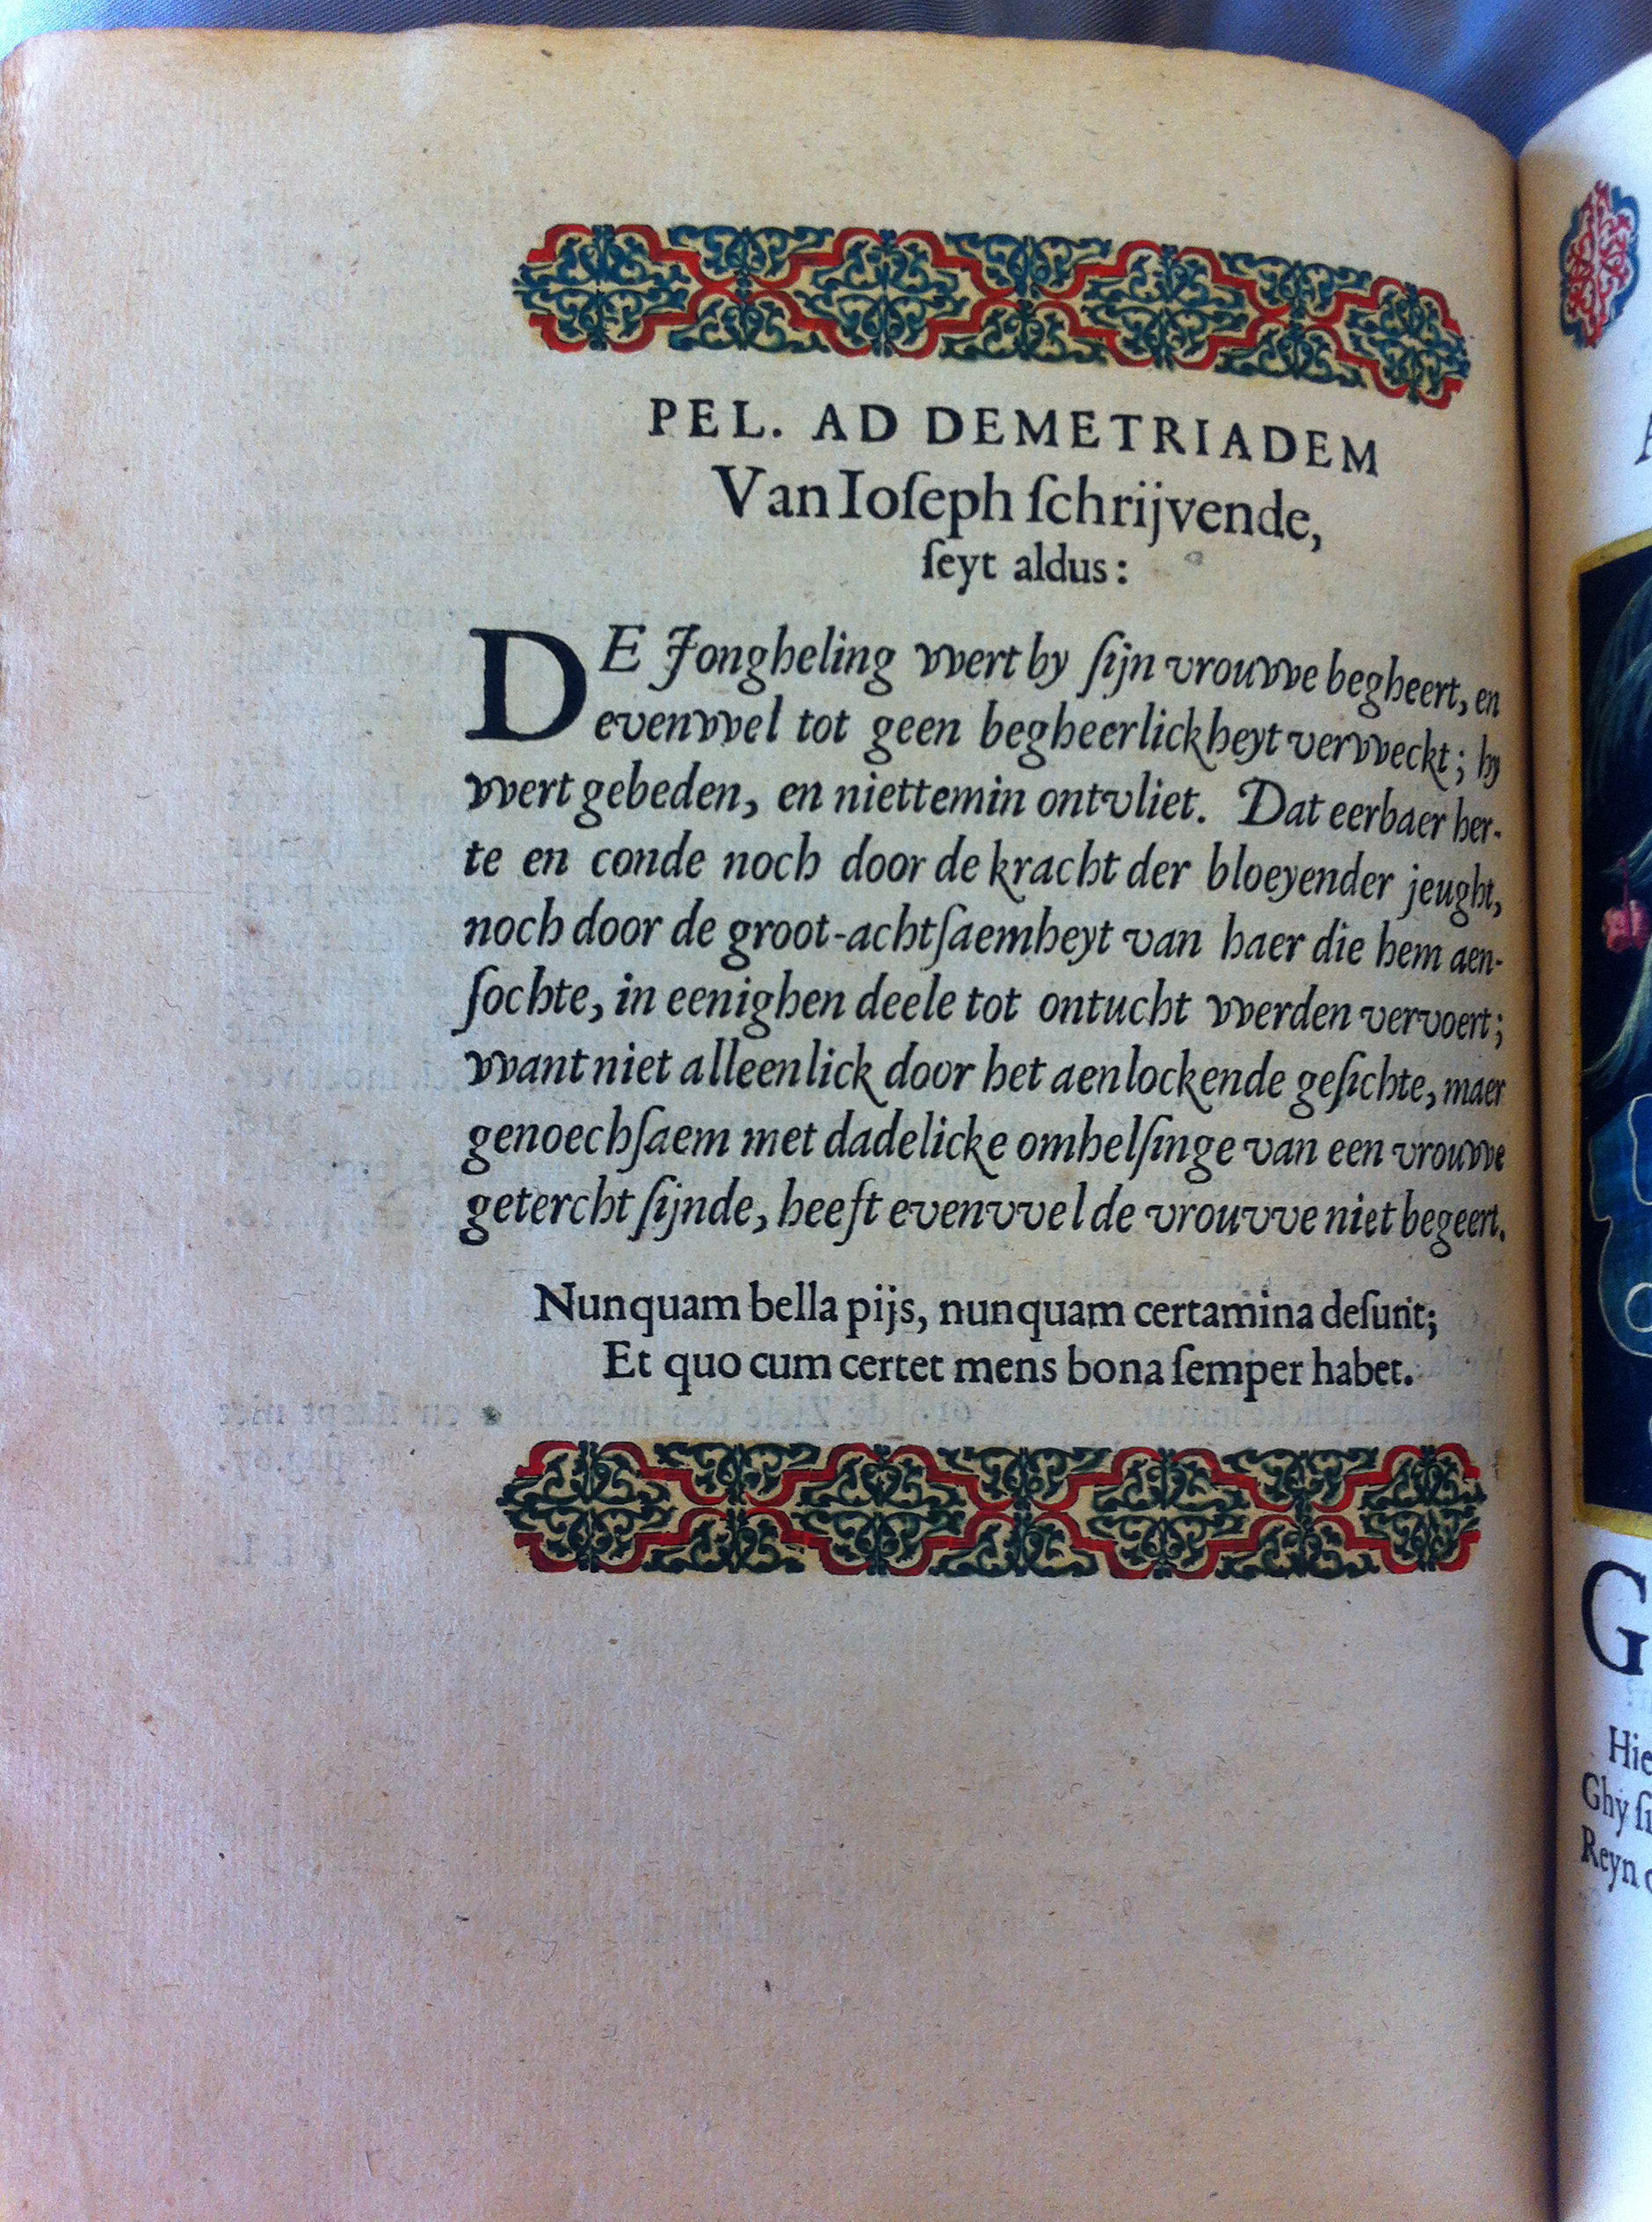 PEL. AD DEMETRIADEM
Van Ioſeph ſchrijvende,
ſeyt aldus:
DE Jongheling vvert by ſijn vrouvve begheert, en
evenvvel tot geen begheerlickheyt vervveckt; hy
vvert gebeden, en niettemin ontvliet. Dat eerbaer her-
te en conde noch door de kracht der bloeyender jeught,
noch door de groot-achtſaemheyt van haer die hem aen-
ſochte, in eenighen deele tot ontucht vverden vervoert;
vvant niet alleenlick door het aenlockende geſichte, maer
genoechſaem met dadelicke omhelſinge van een vrouvve
getercht ſijnde, heeft evenvvel de vrouvve niet begeert.
Nunquam bella pijs, nunquam certamina deſunt;
Et quo cum certet mens bona ſemper habet.
G
Hie
Ghy ſi
Reyn